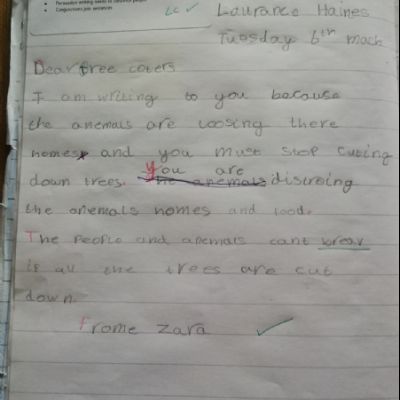 Persuasive writing needs to convince people
Conjunctions join sentences.
LC ✓
Laurance Haines
Tuesday 6th mach
Dear free coters
I am writing to you because
the anemals are loosing there
homes and you must stop cuting
You are
down trees. the anemals distroing
the anemals homes and food.
The People and anemals cant breav
if all the trees are cut
down.
Frome Zara ✓